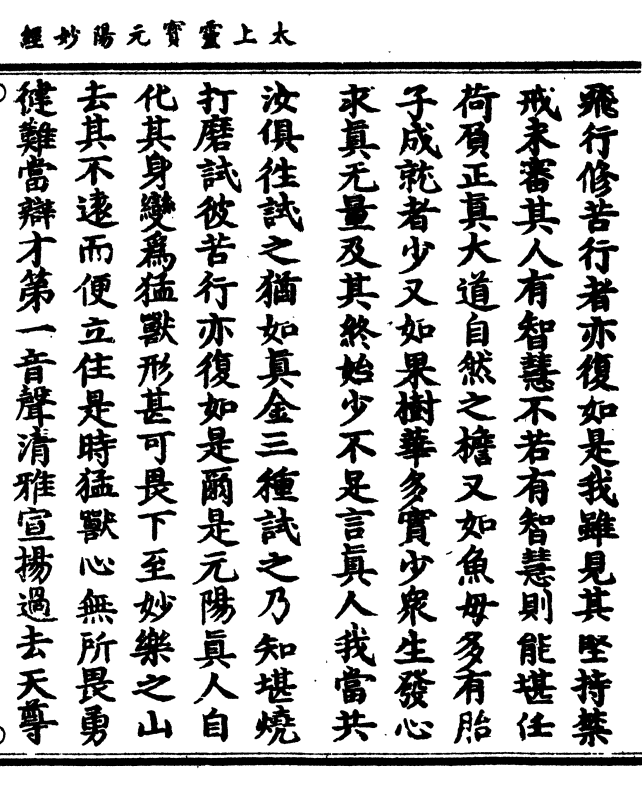 太上靈寶元陽妙經
飛行修苦行者亦復如是我雖見其堅持禁
戒未審其人有智慧不若有智慧則能堪任
荷負正真大道自然之檐又如魚母多有胎
子成就者少又如果樹華多實少衆生發心
求真无量及其終始少不足言真人我當共
汝俱往試之猶如真金三種試之乃知堪燒
打磨試彼苦行亦復如是爾是元陽真人自
化其身變爲猛獸形甚可畏下至妙樂之山
去其不遠而便立住是時猛獸心無所畏勇
健難當辯才第一音聲清雅宣揚過去天尊